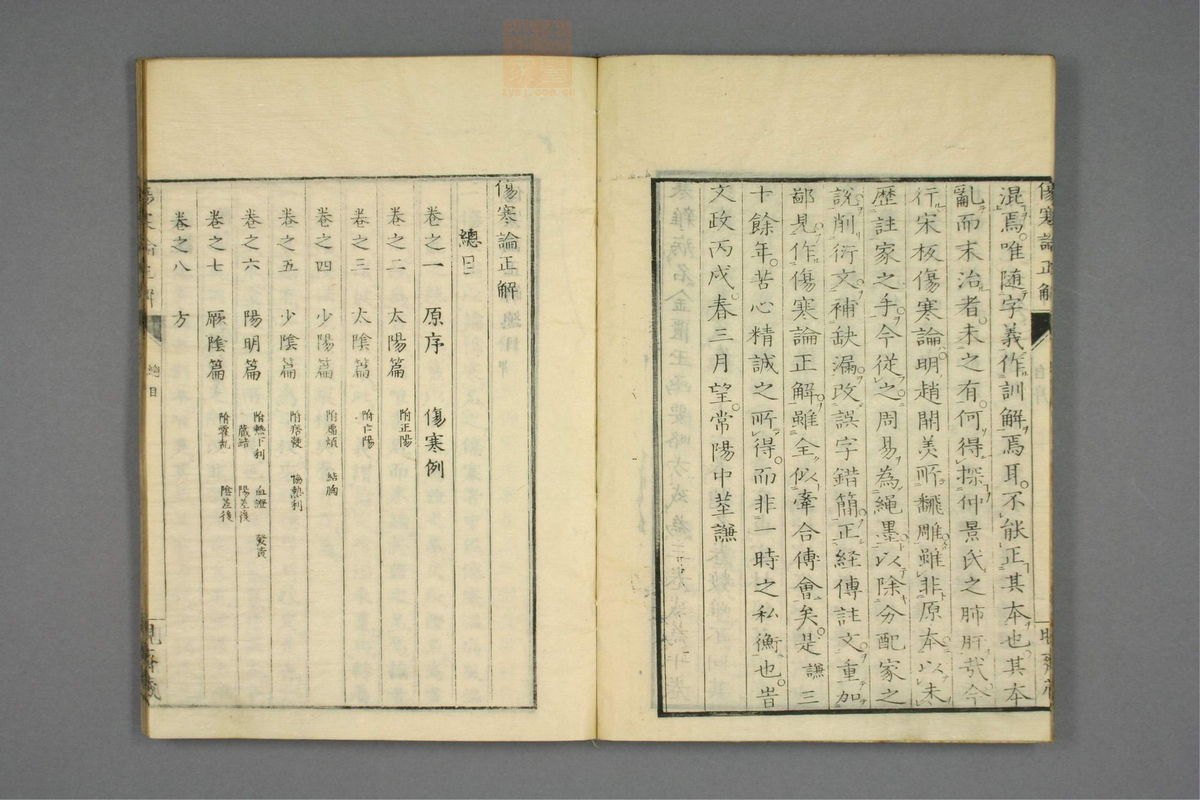 混焉唯随字義作訓解焉耳不能正其本也其本
亂而末治者未之有何得探仲景氏之肺肝哉今
行宋板傷寒論明趙開美所飜雕雖非原本以未
歷註家之手今從之周易為繩墨以除分配家之
說削衍文補缺漏改誤字錯簡正経傳註文重加
鄙見作傷寒論正解雖全似牽合傳會矣是謙三
十餘年苦心精誠之所得而非一時之私衡也旹
文政丙戌春三月望常陽中莖謙
傷寒論正解
總目
卷之一 原序 傷寒例
卷之二 太陽篇 附正陽
卷之三 太陰篇 附亡陽
卷之四 少陽篇 附虛煩 結胸
卷之五 少陰篇 附痞鞕 協熱利
卷之六 陽明篇 附熱下利 血證 發黃 臓結 陽差後
卷之七 厥陰篇 附霍乱 陰差後
卷之八 方
傷寒論正解
總目